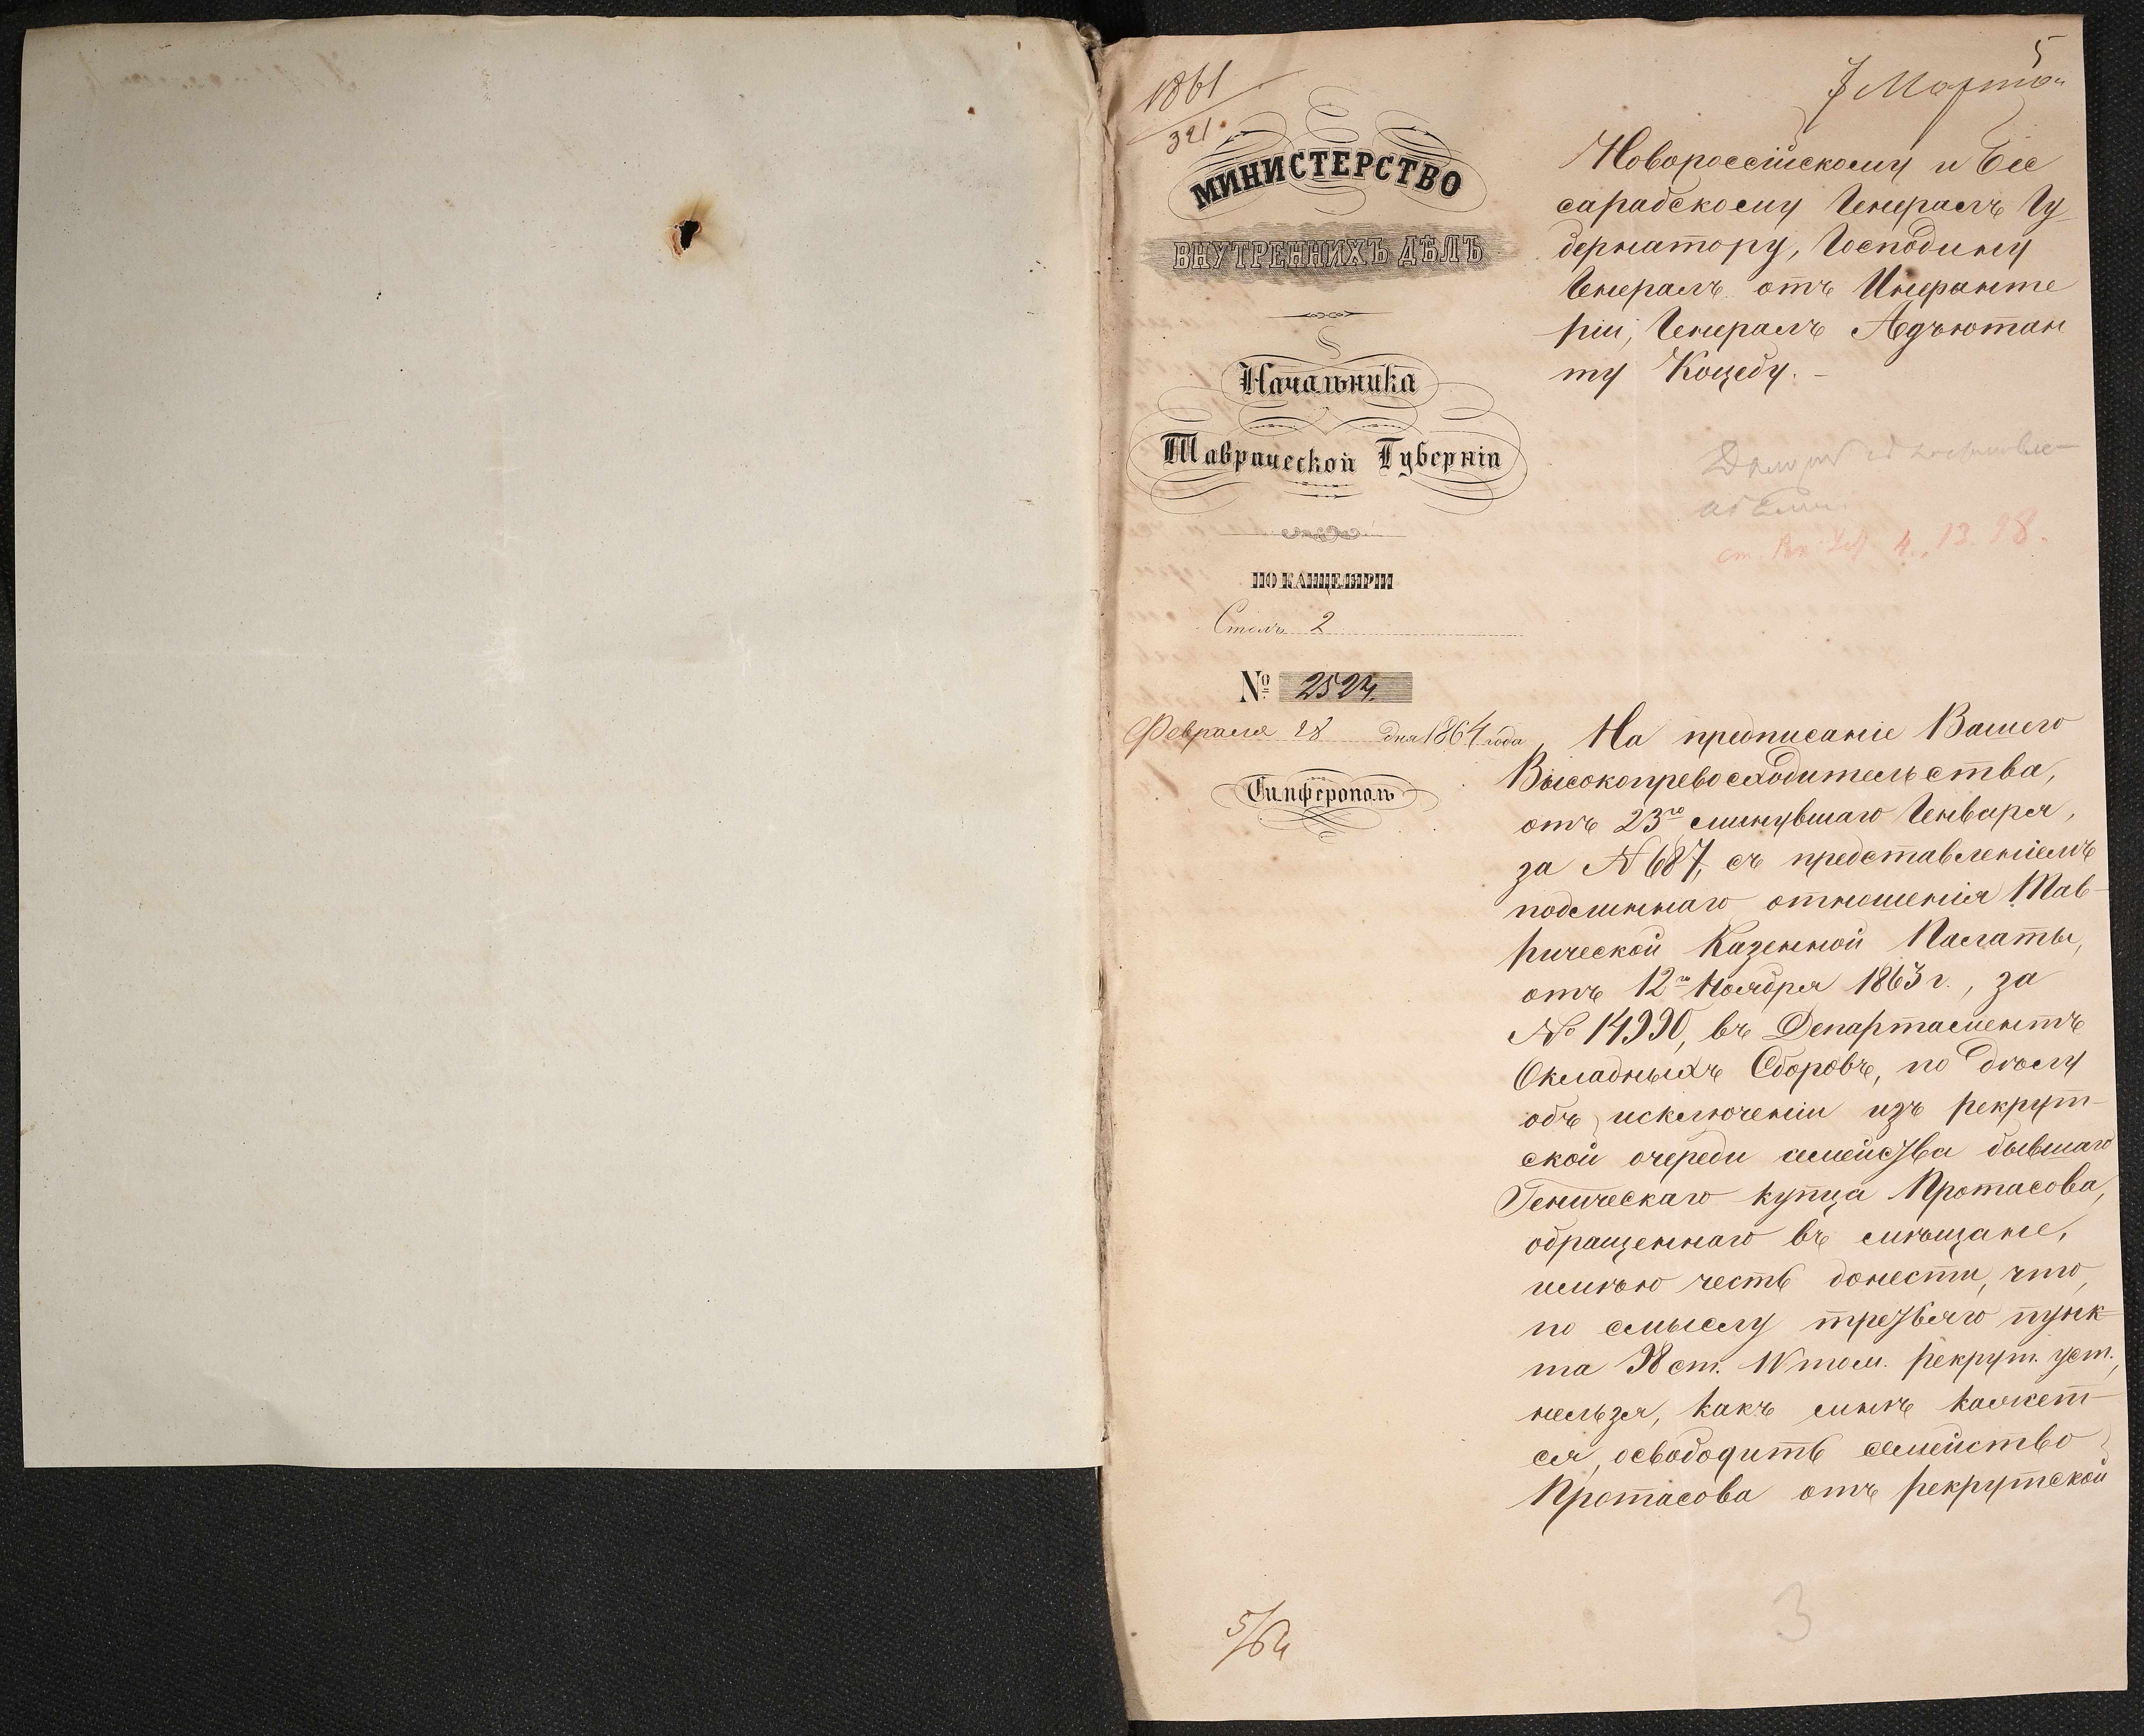 1861
321
5
7 Марта
МИНИСТЕРСТВО
ВНУТРЕННИХЪ ДѢЛЪ
Начальника
Таврической Губерніи
ПО КАНЦЕЛЯРІИ
Столъ 2
№ 2524.
Февраля 28 дня 1864 года
Симферополь
Новороссійскому и Бес
сарабскому Генералъ Гу
бернатору, Господину
Генералъ отъ Инфанте
ріи, Генералъ Адъютан
ту Коцебу.
ст. 4., 13. 18.
На предписаніе Вашего
Высокопревосходительства,
отъ 23го минувшаго Генваря,
за № 687, съ представленіемъ
подлиннаго отношенія Тав-
рической Казенной Палаты,
отъ 12го Ноября 1863 г., за
№ 14990, въ Департаментъ
Окладныхъ Сборовъ, по дѣлу
объ исключеніи изъ рекрут-
ской очереди семейства бывшаго
Геническаго купца Протасова,
обращеннаго въ мѣщане,
имѣю честь донести, что,
по смыслу третьяго пунк-
та 98 ст. IV том. рекрут. уст.,
нельзя, какъ мнѣ кажет-
ся, освободить семейство
Протасова отъ рекрутской
5/64
3